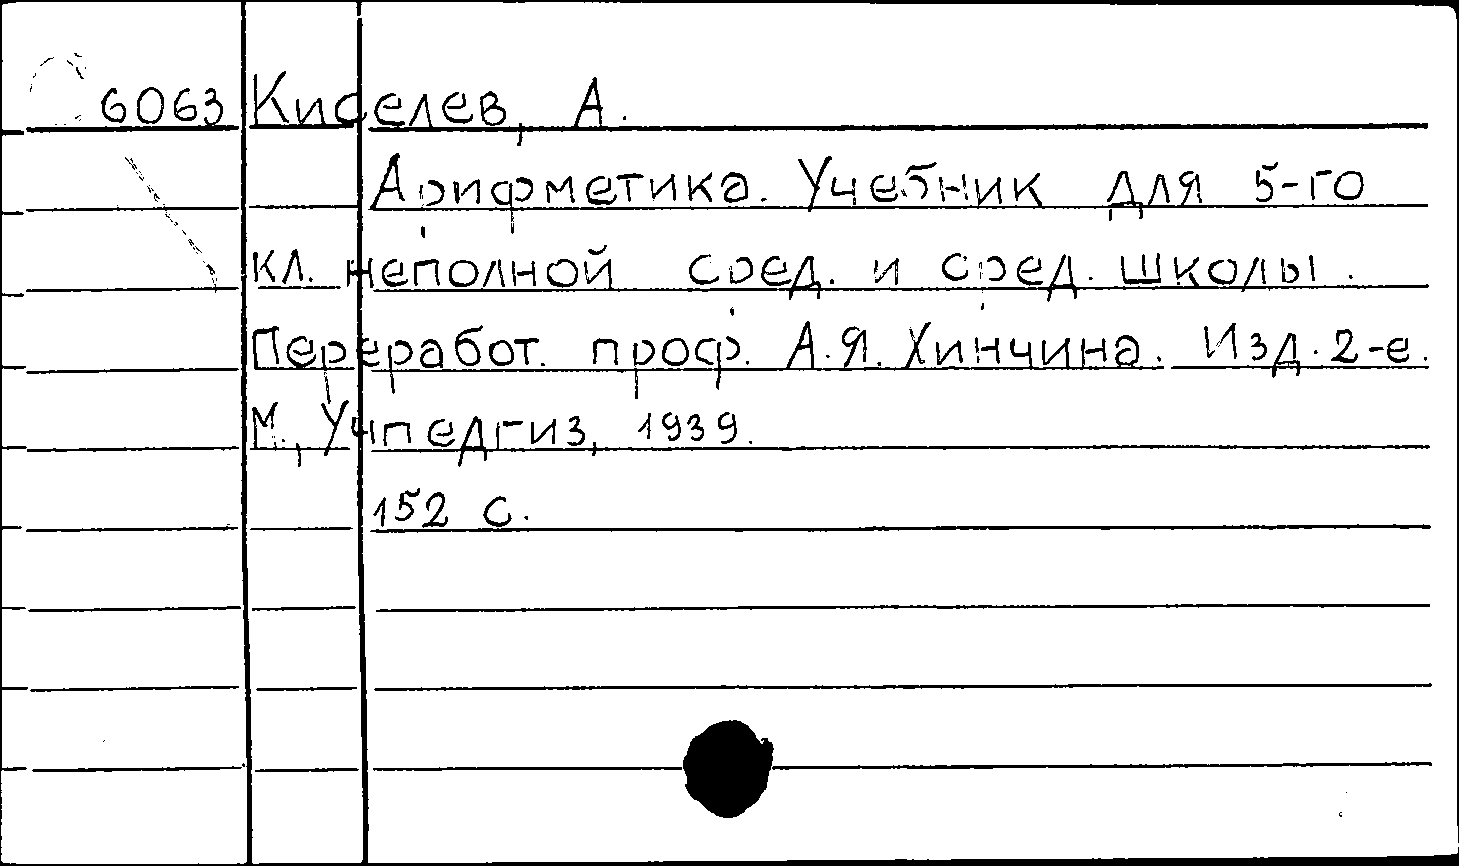 6063 Киселев, А.
Арифметика. Учебник для 5-го
кл. неполной сред. и сред. школы.
Переработ. проф. А.Я. Хинчина. Изд. 2-е.
М., Учпедгиз, 1939.
152 с.